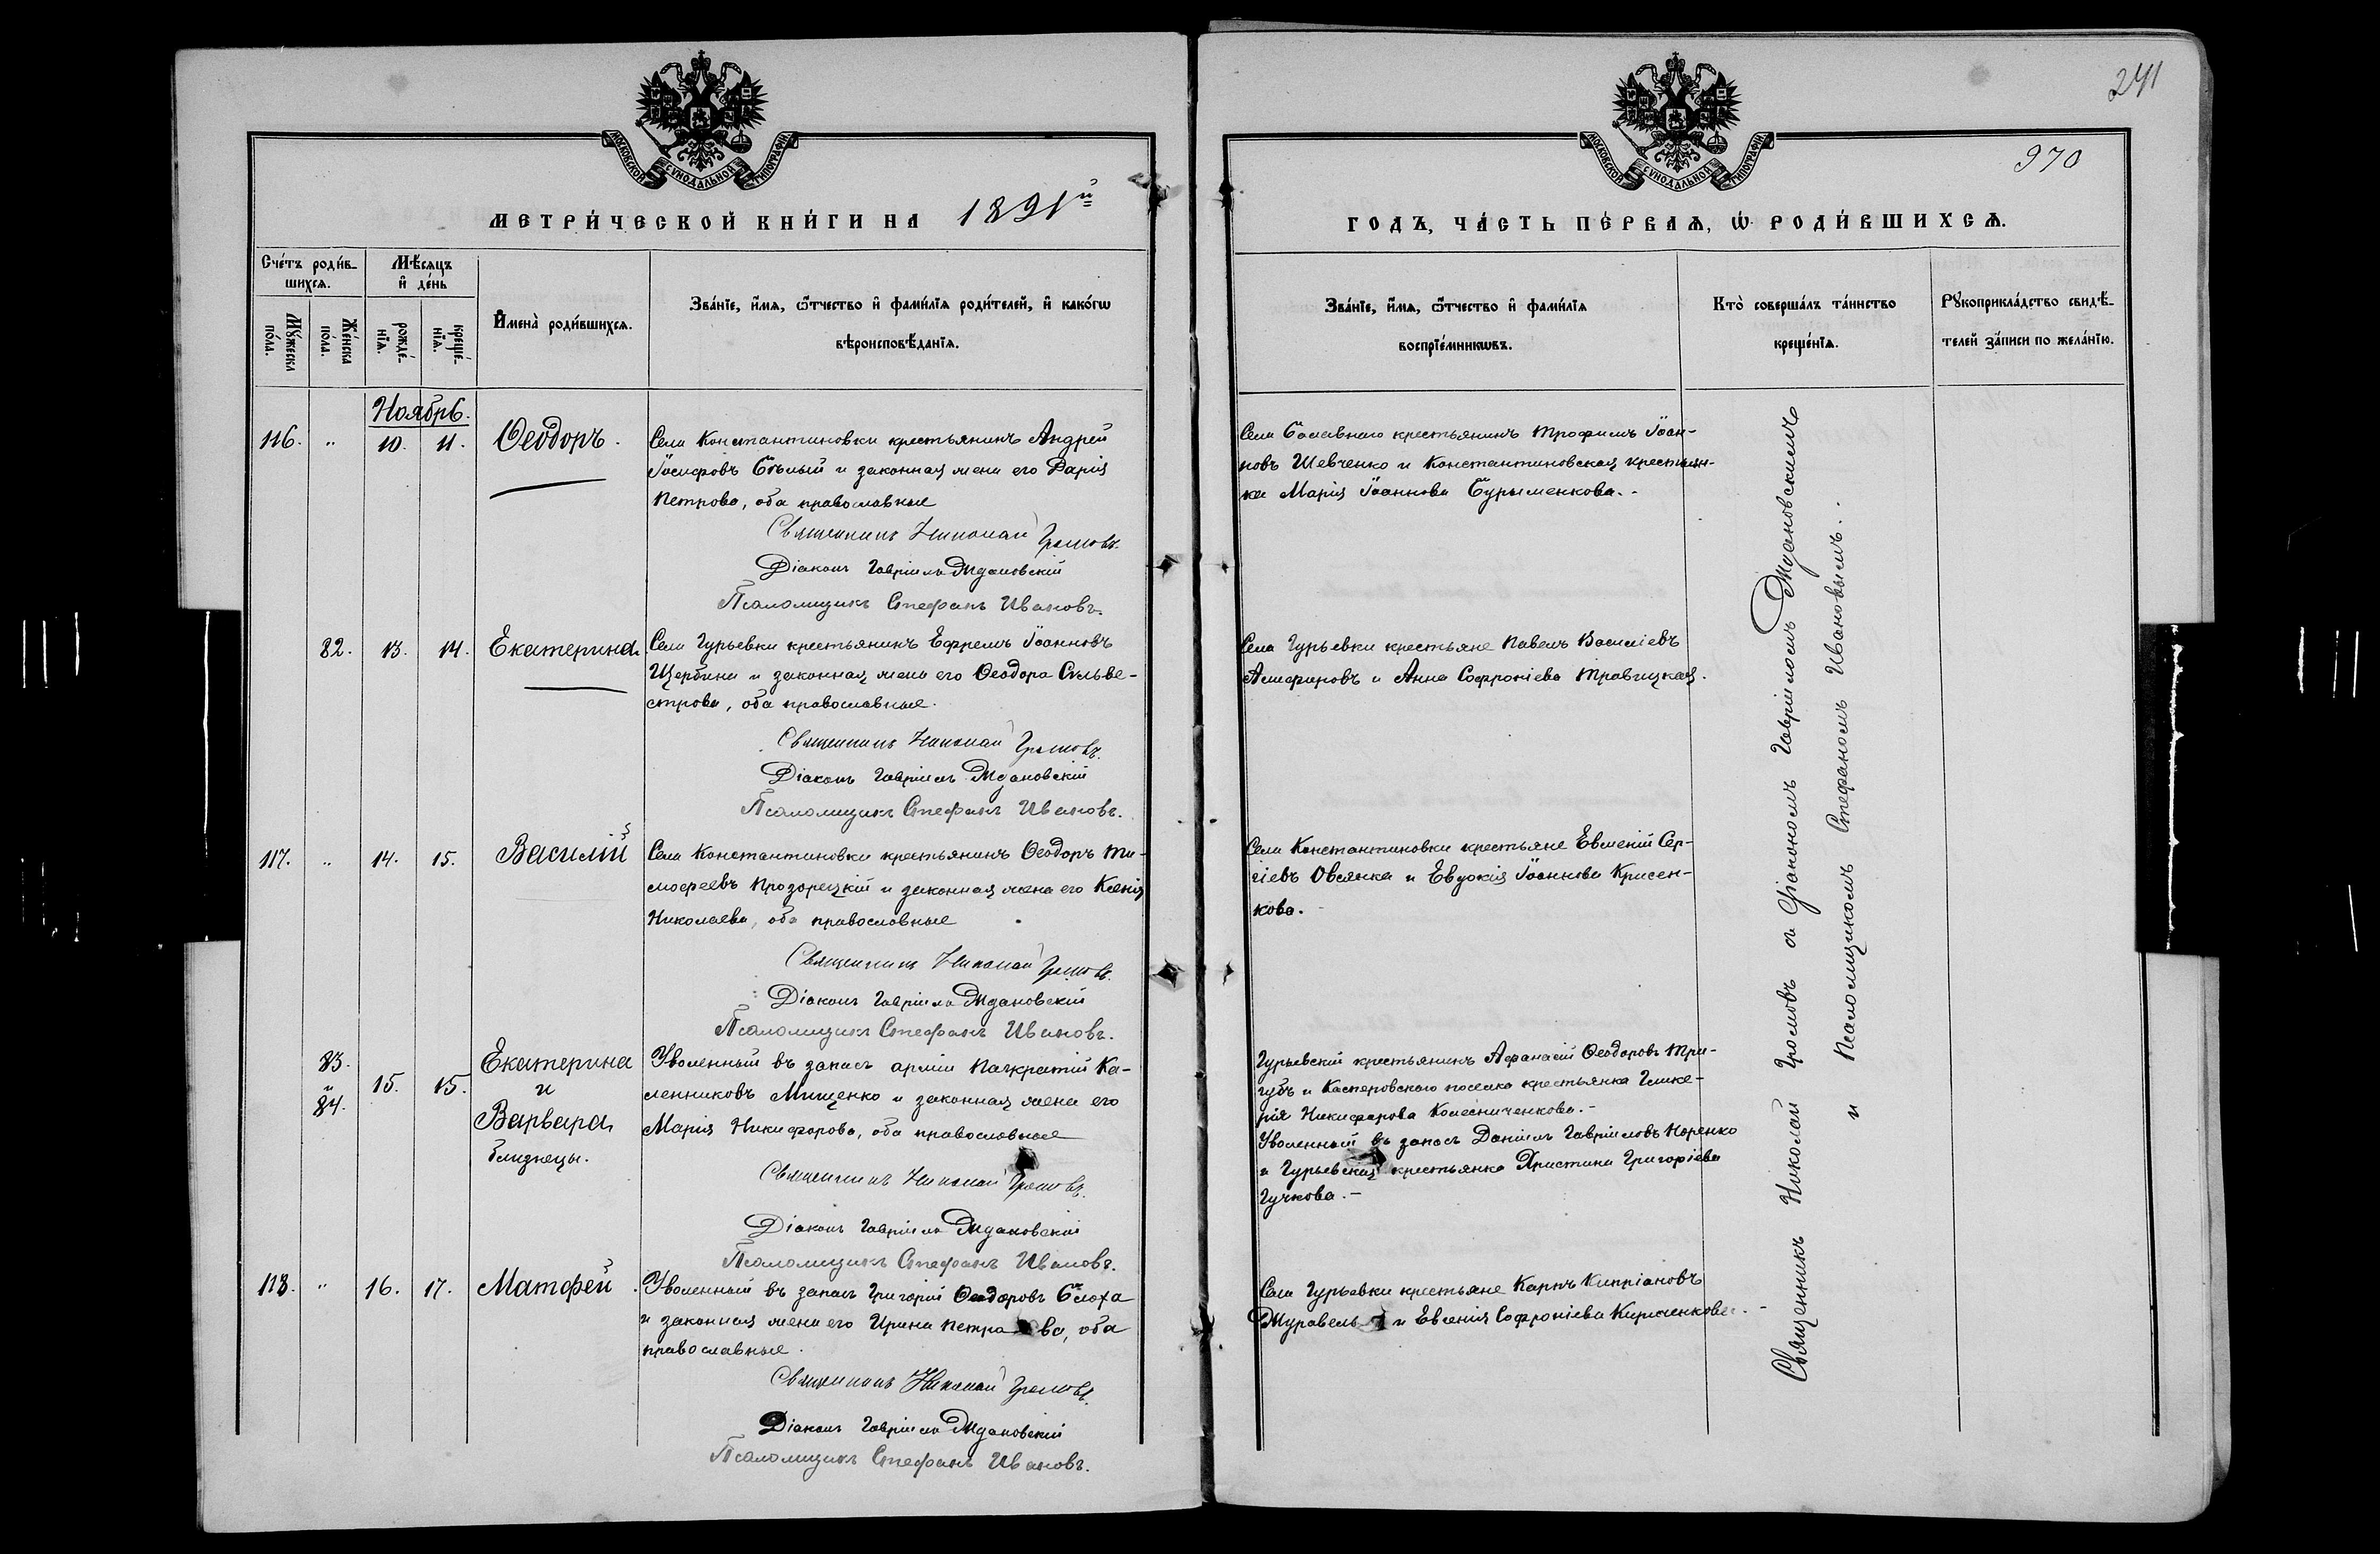 241
970
МОСКОВСКОЙ СѴНОДАЛЬНОЙ ТИПОГРАФІИ
МОСКОВСКОЙ СѴНОДАЛЬНОЙ ТИПОГРАФІИ
МЕТРИ́ЧЕСКОЙ КНИ́ГИ НА 1891й
ГОДЪ, ЧА́СТЬ ПЕ́РВАѦ, Ѡ РОДИ́ВШИХСѦ.
Сче́тъ роди́в-
шихсѧ.
Мꙋ́жеска по́ла.
Же́нска по́ла.
Мѣ́сѧцъ и де́нь
рожде́-нїѧ.
креще́-нїѧ.
И҆мена̀ роди́вшихсѧ.
Зва́нїе, и҆́мѧ, ѻ҆́тчество и҆ фами́лїѧ роди́телей, и҆ како́гѡ
вѣроисповѣ́данїѧ.
Зва́нїе, и҆́мѧ, ѻ҆́тчество и҆ фами́лїѧ
воспрїе́мникѡвъ.
Кто̀ соверша́лъ та́инство
креще́нїѧ.
Рꙋкоприкла́дство свидѣ́-
телей за́писи по жела́нїю.
Ноябрь.
116. " 10. 11. Ѳеодоръ.
Села Константиновки крестьянинъ Андрей
Іосифовъ Бѣлый и законная жена его Дарія
Петрова, оба православные
Священникъ Николай Громовъ.
Діаконъ Гавріилъ Ждановскій
Псаломщикъ Стефанъ Ивановъ.
крестьянинъ Трофимъ Іоан-
новъ Шевченко и Константиновская крестьян-
ка Марія Іоаннова Бурыменкова.
82. 13. 14. Екатерина.
Села Гурьевки крестьянинъ Ефремъ Іоанновъ
Щербина и законная жена его Ѳеодора Сильве-
строва, оба православные.
Священникъ Николай Громовъ.
Діаконъ Гавріилъ Ждановскій
Псаломщикъ Стефанъ Ивановъ.
Села Гурьевки крестьяне Павелъ Василіевъ
и Анна Софроніева Травицкая.
117. " 14. 15. Василій
Села Константиновки крестьянинъ Ѳеодоръ Ти-
моѳеевъ Прозорецкій и законная жена его Ксенія
Николаева, оба православные
Священникъ Николай Громовъ.
Діаконъ Гавріилъ Ждановскій
Псаломщикъ Стефанъ Ивановъ.
Села Константиновки крестьяне Евгеній Сер-
гіевъ Овсянка и Евдокія Іоаннова Крисен-
кова.
83. и 84. 15. 15. Екатерина
и
Варвара
близнецы.
Уволенный въ запасъ арміи Панкратій Ка-
линниковъ Мищенко и законная жена его
Марія Никифорова, оба православные
Священникъ Николай Громовъ.
Діаконъ Гавріилъ Ждановскій
Псаломщикъ Стефанъ Ивановъ.
Гурьевскій крестьянинъ Афанасій Ѳеодоровъ Три-
губъ и Касперовскаго поселка крестьянка Глике-
рія Никифорова Колесниченкова.-
Уволенный въ запасъ Даніилъ Гавріиловъ Норенко
и Гурьевская крестьянка Христина Григоріева
Гучкова.-
118. " 16. 17. Матфей.
Уволенный въ запасъ Григорій Ѳеодоровъ Блоха
и законная жена его Ирина Петрова, оба
православные.
Священникъ Николай Громовъ.
Діаконъ Гавріилъ Ждановскій
Псаломщикъ Стефанъ Ивановъ.
Села Гурьевки крестьяне Карпъ Кипріановъ
Журавель и Евгенія Софроніева Кириченкова.-
Священникъ Николай Громовъ съ Діакономъ Гавріиломъ Ждановскимъ
и Псаломщикомъ Стефаномъ Ивановымъ.